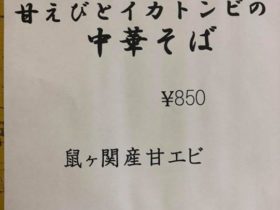 甘えびとイカトンビの
中華そば
¥850
鼠ヶ関産甘エビ